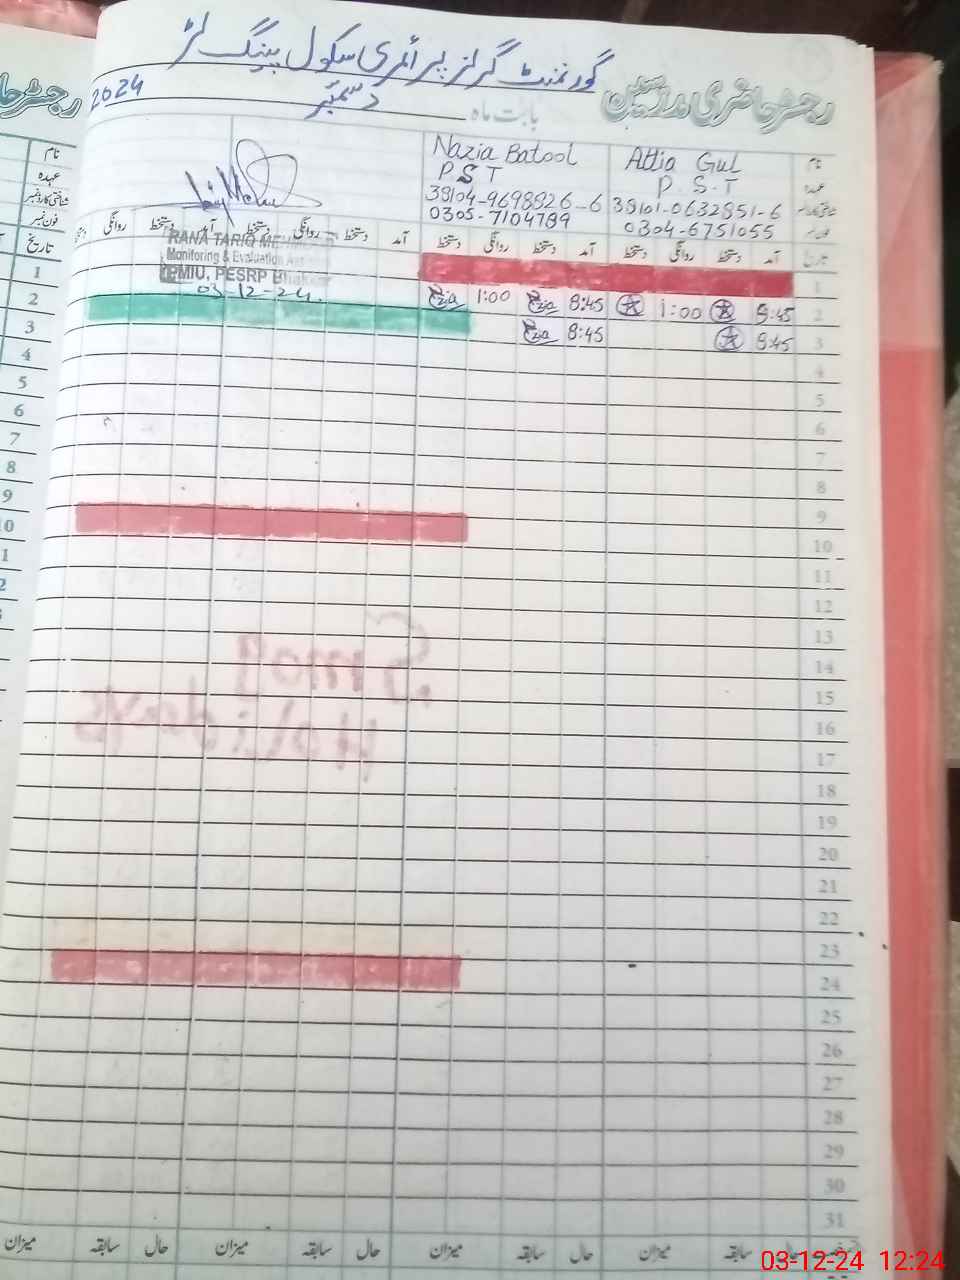 گورنمنٹ گرلز پرائمری سکول
رجسٹر حاضری مدرسین
بابت ماہ دسمبر 2024
نام Attia Gul Nazia Batool
عہدہ P.S.T PST
شناختی کارڈ نمبر 38101-0632851-6 38104-9698826-6
فون نمبر 0304-6751055 0305-7104789
تاریخ آمد دستخط روانگی دستخط آمد دستخط روانگی دستخط آمد دستخط روانگی دستخط آمد دستخط روانگی دستخط
RANA TARIQ
Monitoring & Evaluation
PMIU, PESRP Bhakkar
03-12-24
1
2 8:45 1:00 8:45 Nazia 1:00 Nazia
3 8:45 8:45 Nazia
4
5
6
7
8
9
10
11
12
13
14
15
16
17
18
19
20
21
22
23
24
25
26
27
28
29
30
31
Smog
Holidays
حال سابقہ میزان حال سابقہ میزان حال سابقہ میزان حال سابقہ میزان
رجسٹر حا
نام
عہدہ
شناختی کارڈ نمبر
فون نمبر
تاریخ
1
2
3
4
5
6
7
8
9
10
03-12-24 12:24